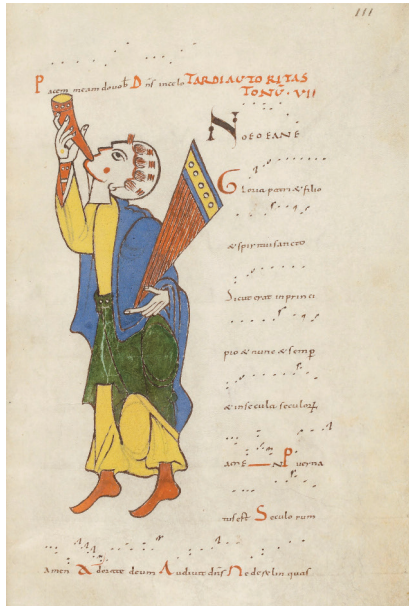 III
Pacem meam do vob Dns in celo TARDI AUTORITAS
TONŪ · VII
NOEOEANE
Gloria patri & filio
& spiritui sancto
Sicut erat in princi
pio & nunc & semp
& in secula seculor
amE N Puer na
tus est Seculo rum
amen Adorate deum Audivit dns